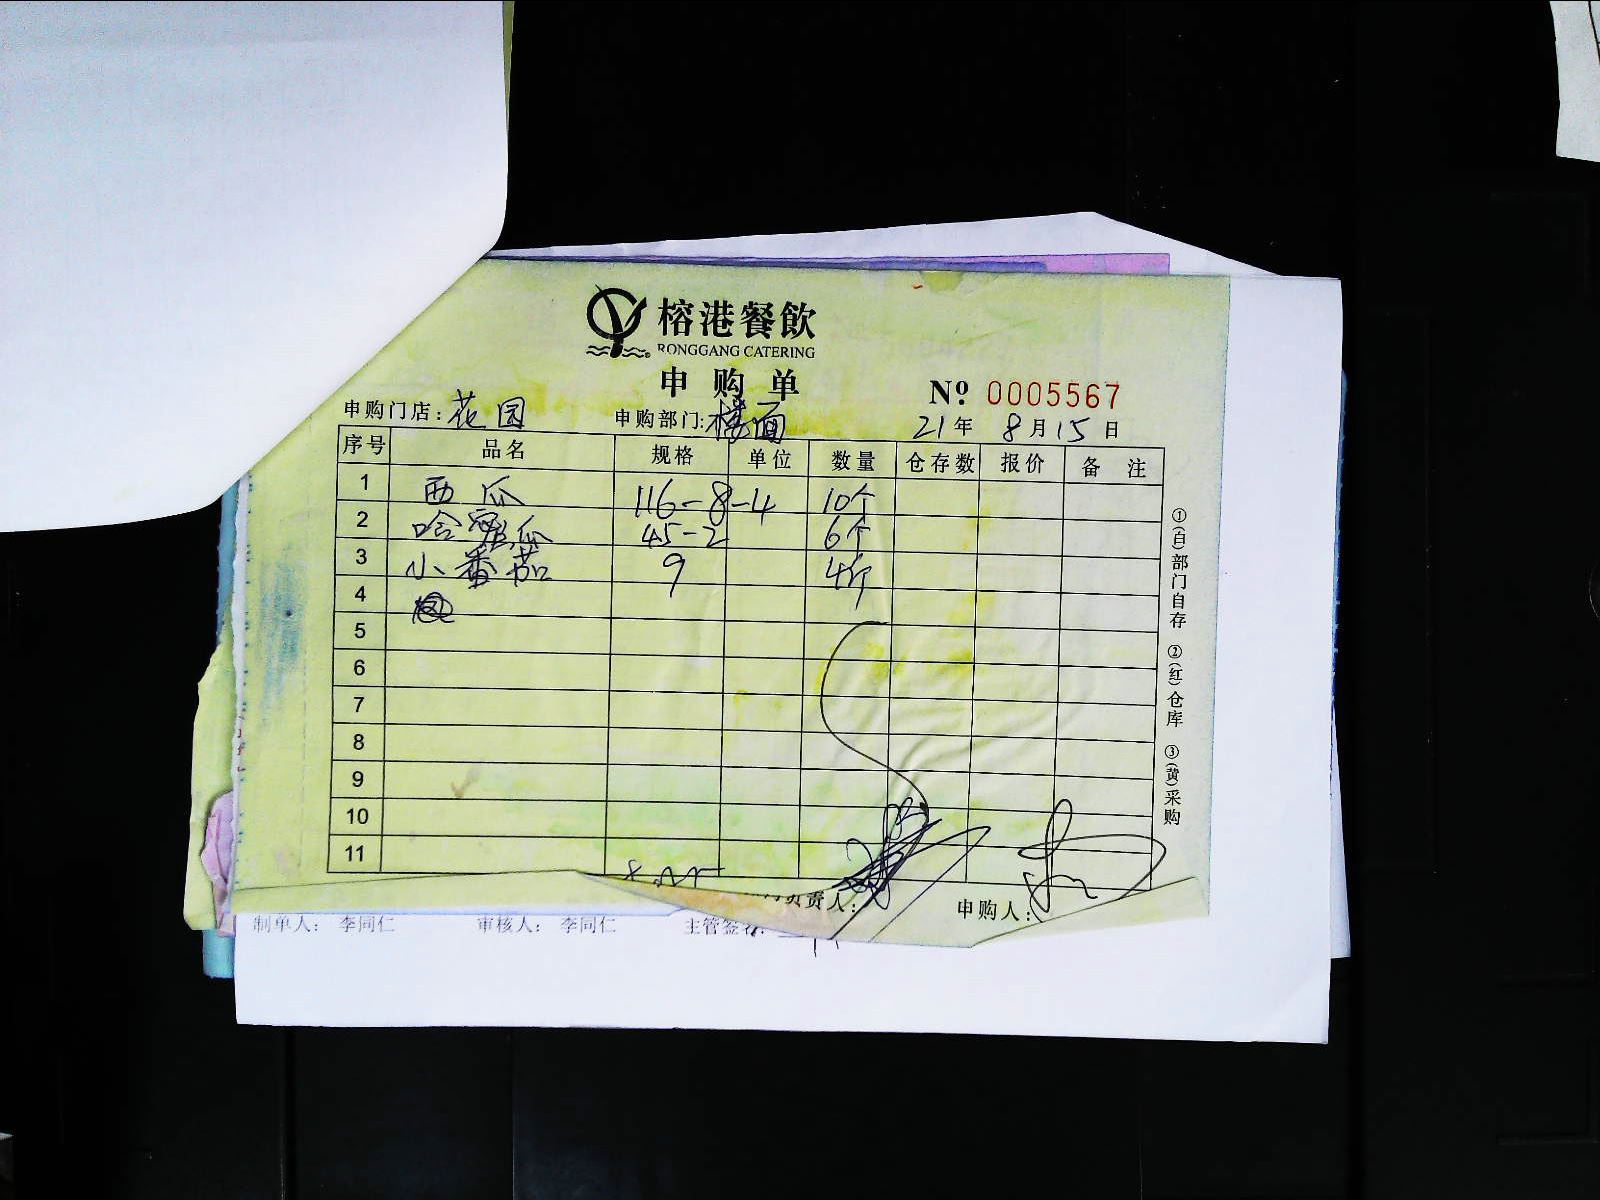 榕港餐飲
RONGGANG CATERING
申购单
Nº 0005567
申购门店: 花园 申购部门: 楼面 21年 8月15日
序号 品名 规格 单位 数量 仓存数 报价 备 注
1 西瓜 116-8-4 10个
2 哈密瓜 45-2 6个
3 小番茄 9 4斤
4
5
6
7
8
9
10
11
负责人: 申购人:
①(白)部门自存 ②(红)仓库 ③(黄)采购
制单人: 李同仁 审核人: 李同仁 主管签名: